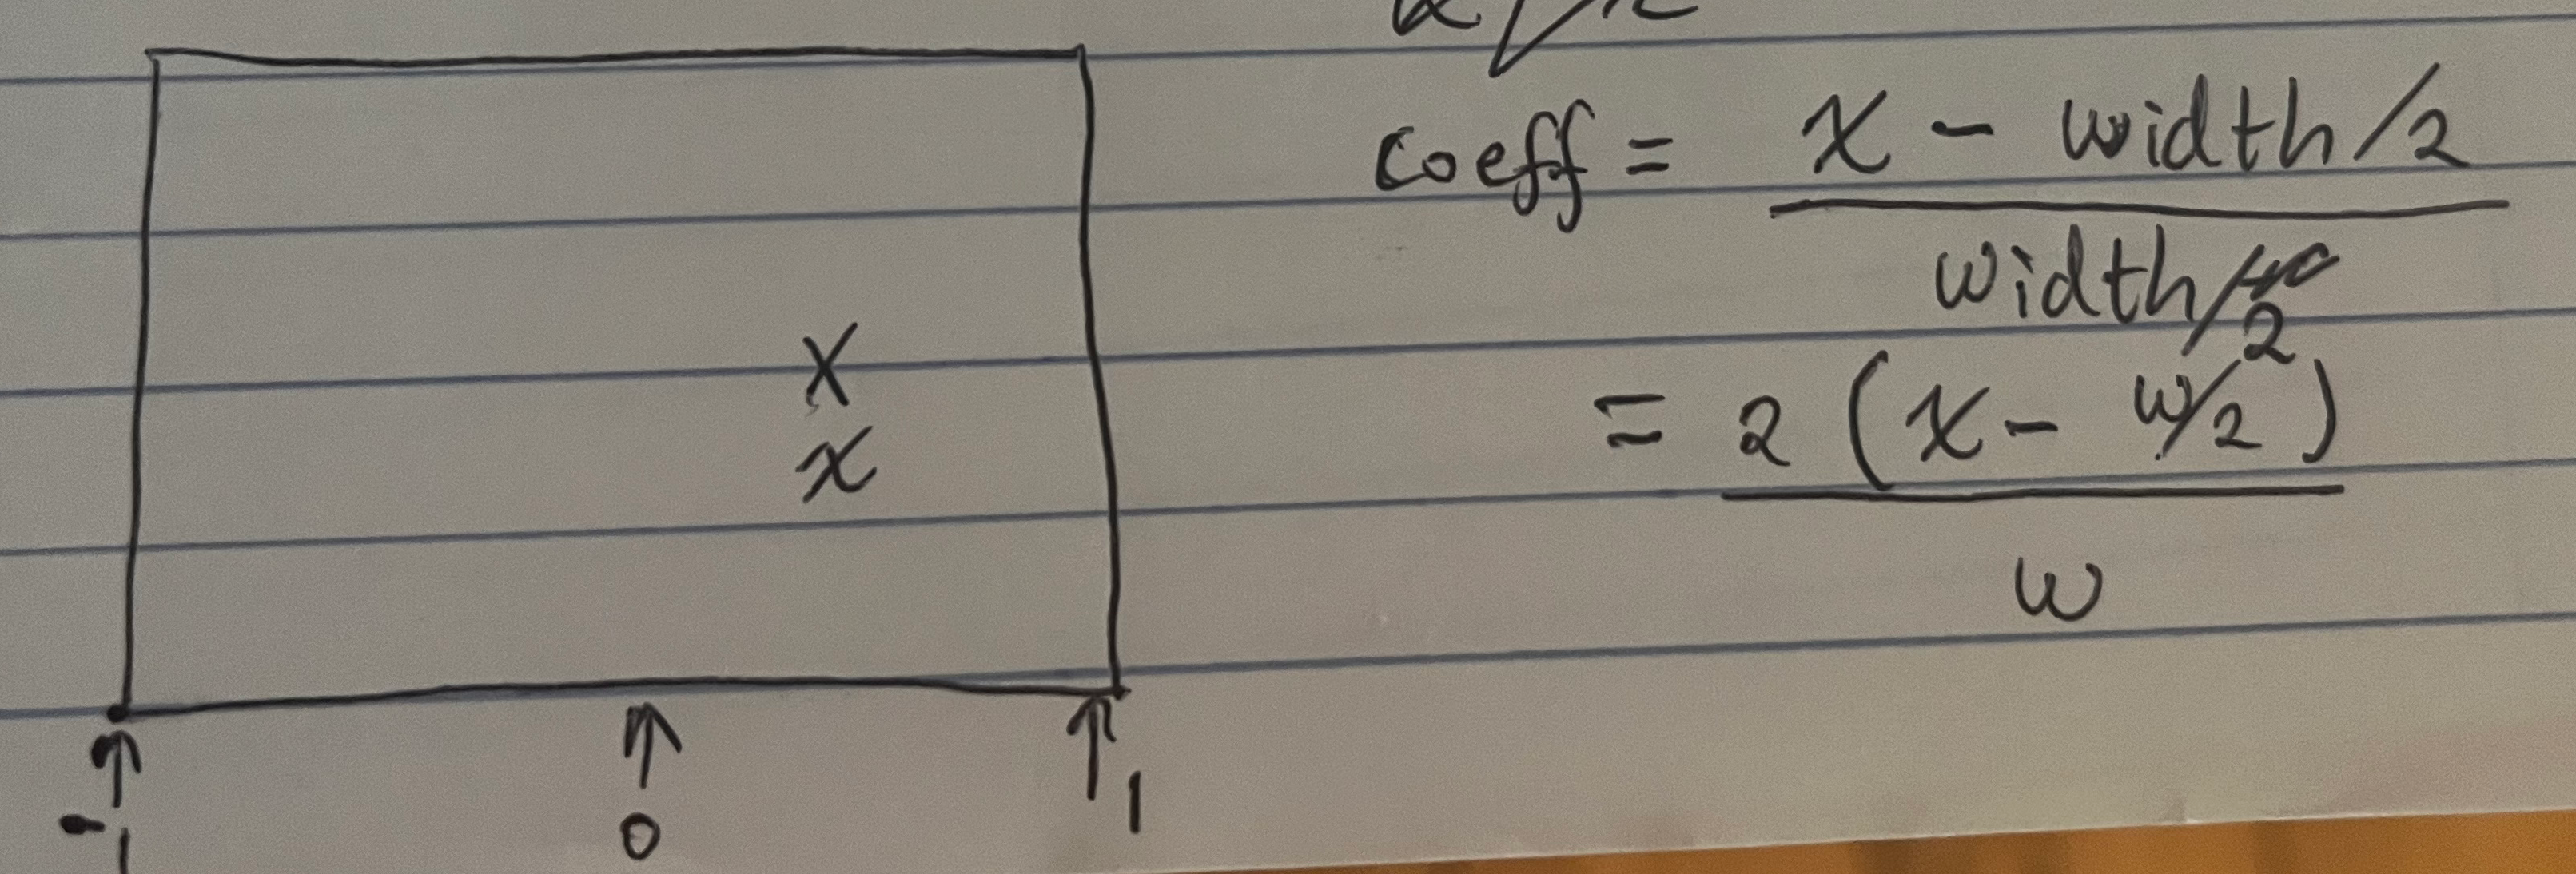 coeff = x - width/2
width/2
= 2 (x - w/2)
w
X
x
-1 0 1